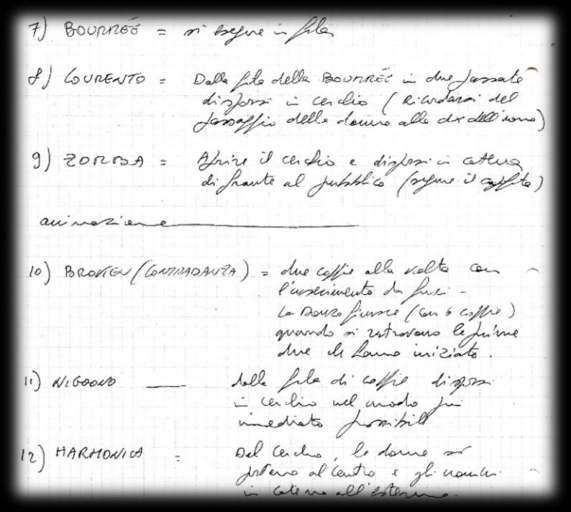 7) BOURRÉE = si esegue in fila
8) COURENTO = Dalla fila della BOURRÉE in due passate
disporsi in cerchio (Ricordarsi del
passaggio delle donne alla dx dell'uomo)
9) ZORBA = Aprire il cerchio e disporsi in catena
di fronte al pubblico (segue il
animazione
10) (CONTRADANZA) = due coppie alla volta con
l'inserimento da fuori -
La Danza finisce (con 6 coppie)
quando si ritrovano le prime
due che hanno iniziato.
11) NIGOUNO — dalla fila di coppie disporsi
in cerchio nel modo più
immediato possibile
12) HARMONICA = Dal cerchio, le donne si
portano al centro e gli uomini
in catena all'esterno.